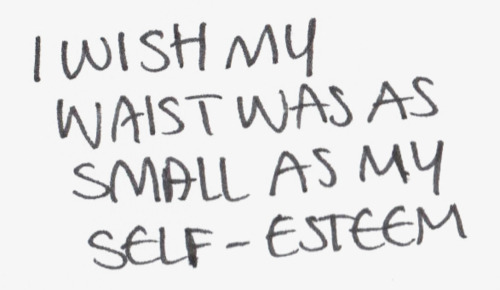 I WISH MY
WAIST WAS AS
SMALL AS MY
SELF-ESTEEM